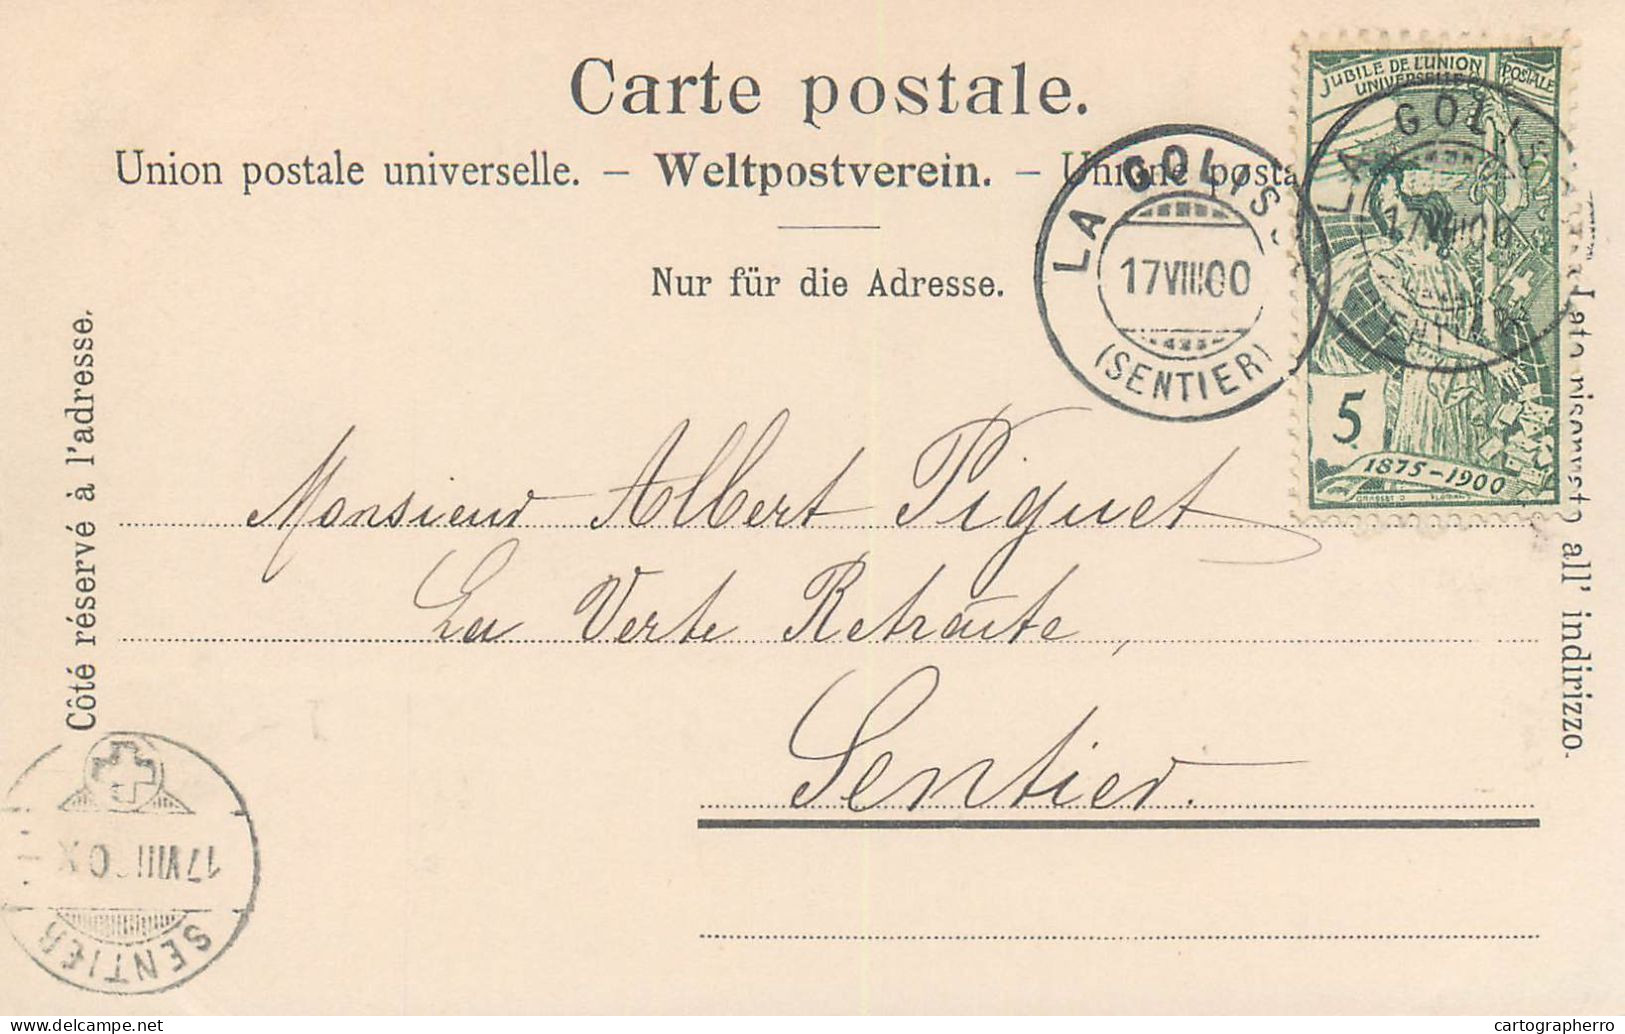 Carte postale.
Union postale universelle. – Weltpostverein. – Unione posta
Nur für die Adresse.
Côté réservé à l'adresse.
Lato riservato all' indirizzo.
JUBILÉ DE L'UNION POSTALE
UNIVERSELLE
5
1875-1900
LA GOLISSE
17 VIII 00
(SENTIER)
LA GOLISSE
17 VIII 00
Monsieur Albert Piguet
La Verte Retraite,
Sentier.
17 VIII 00 X
SENTIER
delcampe.net
cartographerro